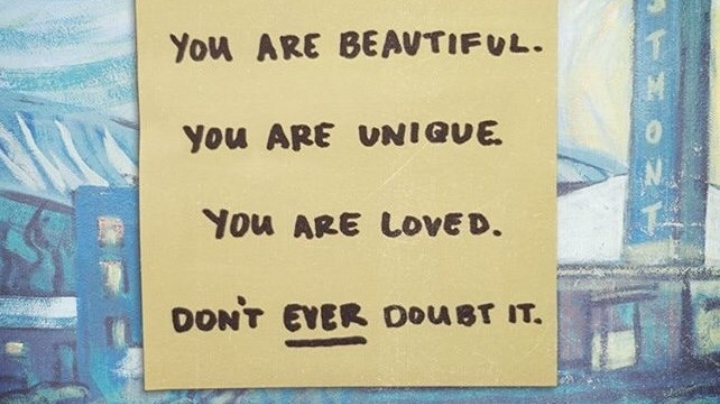 YOU ARE BEAUTIFUL.
YOU ARE UNIQUE.
YOU ARE LOVED.
DON'T EVER DOUBT IT.
STMONT